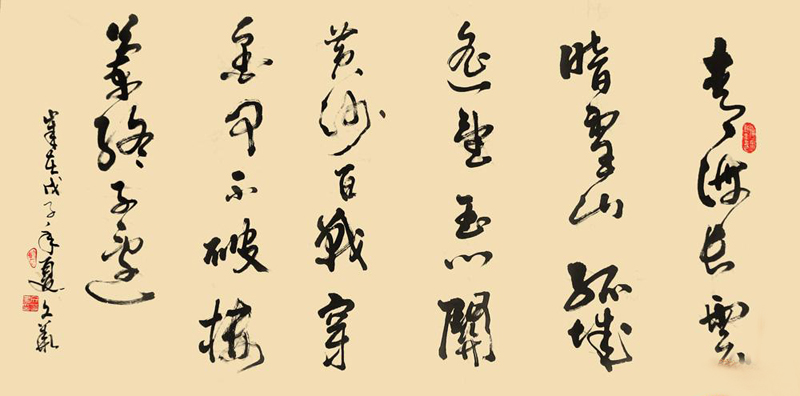 青海長雲
暗雪山孤城
遙望玉門關
黄沙百戰穿
金甲不破樓
蘭終不還
歲在戊子年夏